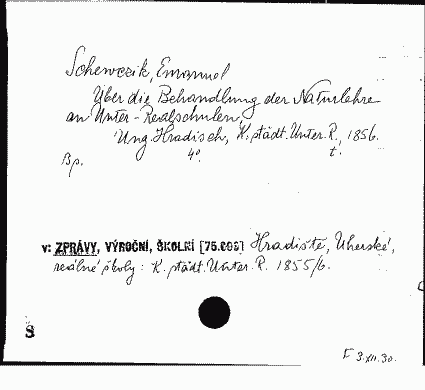 Schewczik, Emanuel
Über die Behandlung der Naturlehre
an Unter-Realschulen,
Ung. Hradisch, K. städt. Unter. R, 1856.
Bp. 4° t.
v: ZPRÁVY, VÝROČNÍ, ŠKOLNÍ [75.003] Hradiště, Uherské,
reálné školy: K. städt. Unter. R. 1855/6.
S
F 3.XII.30.